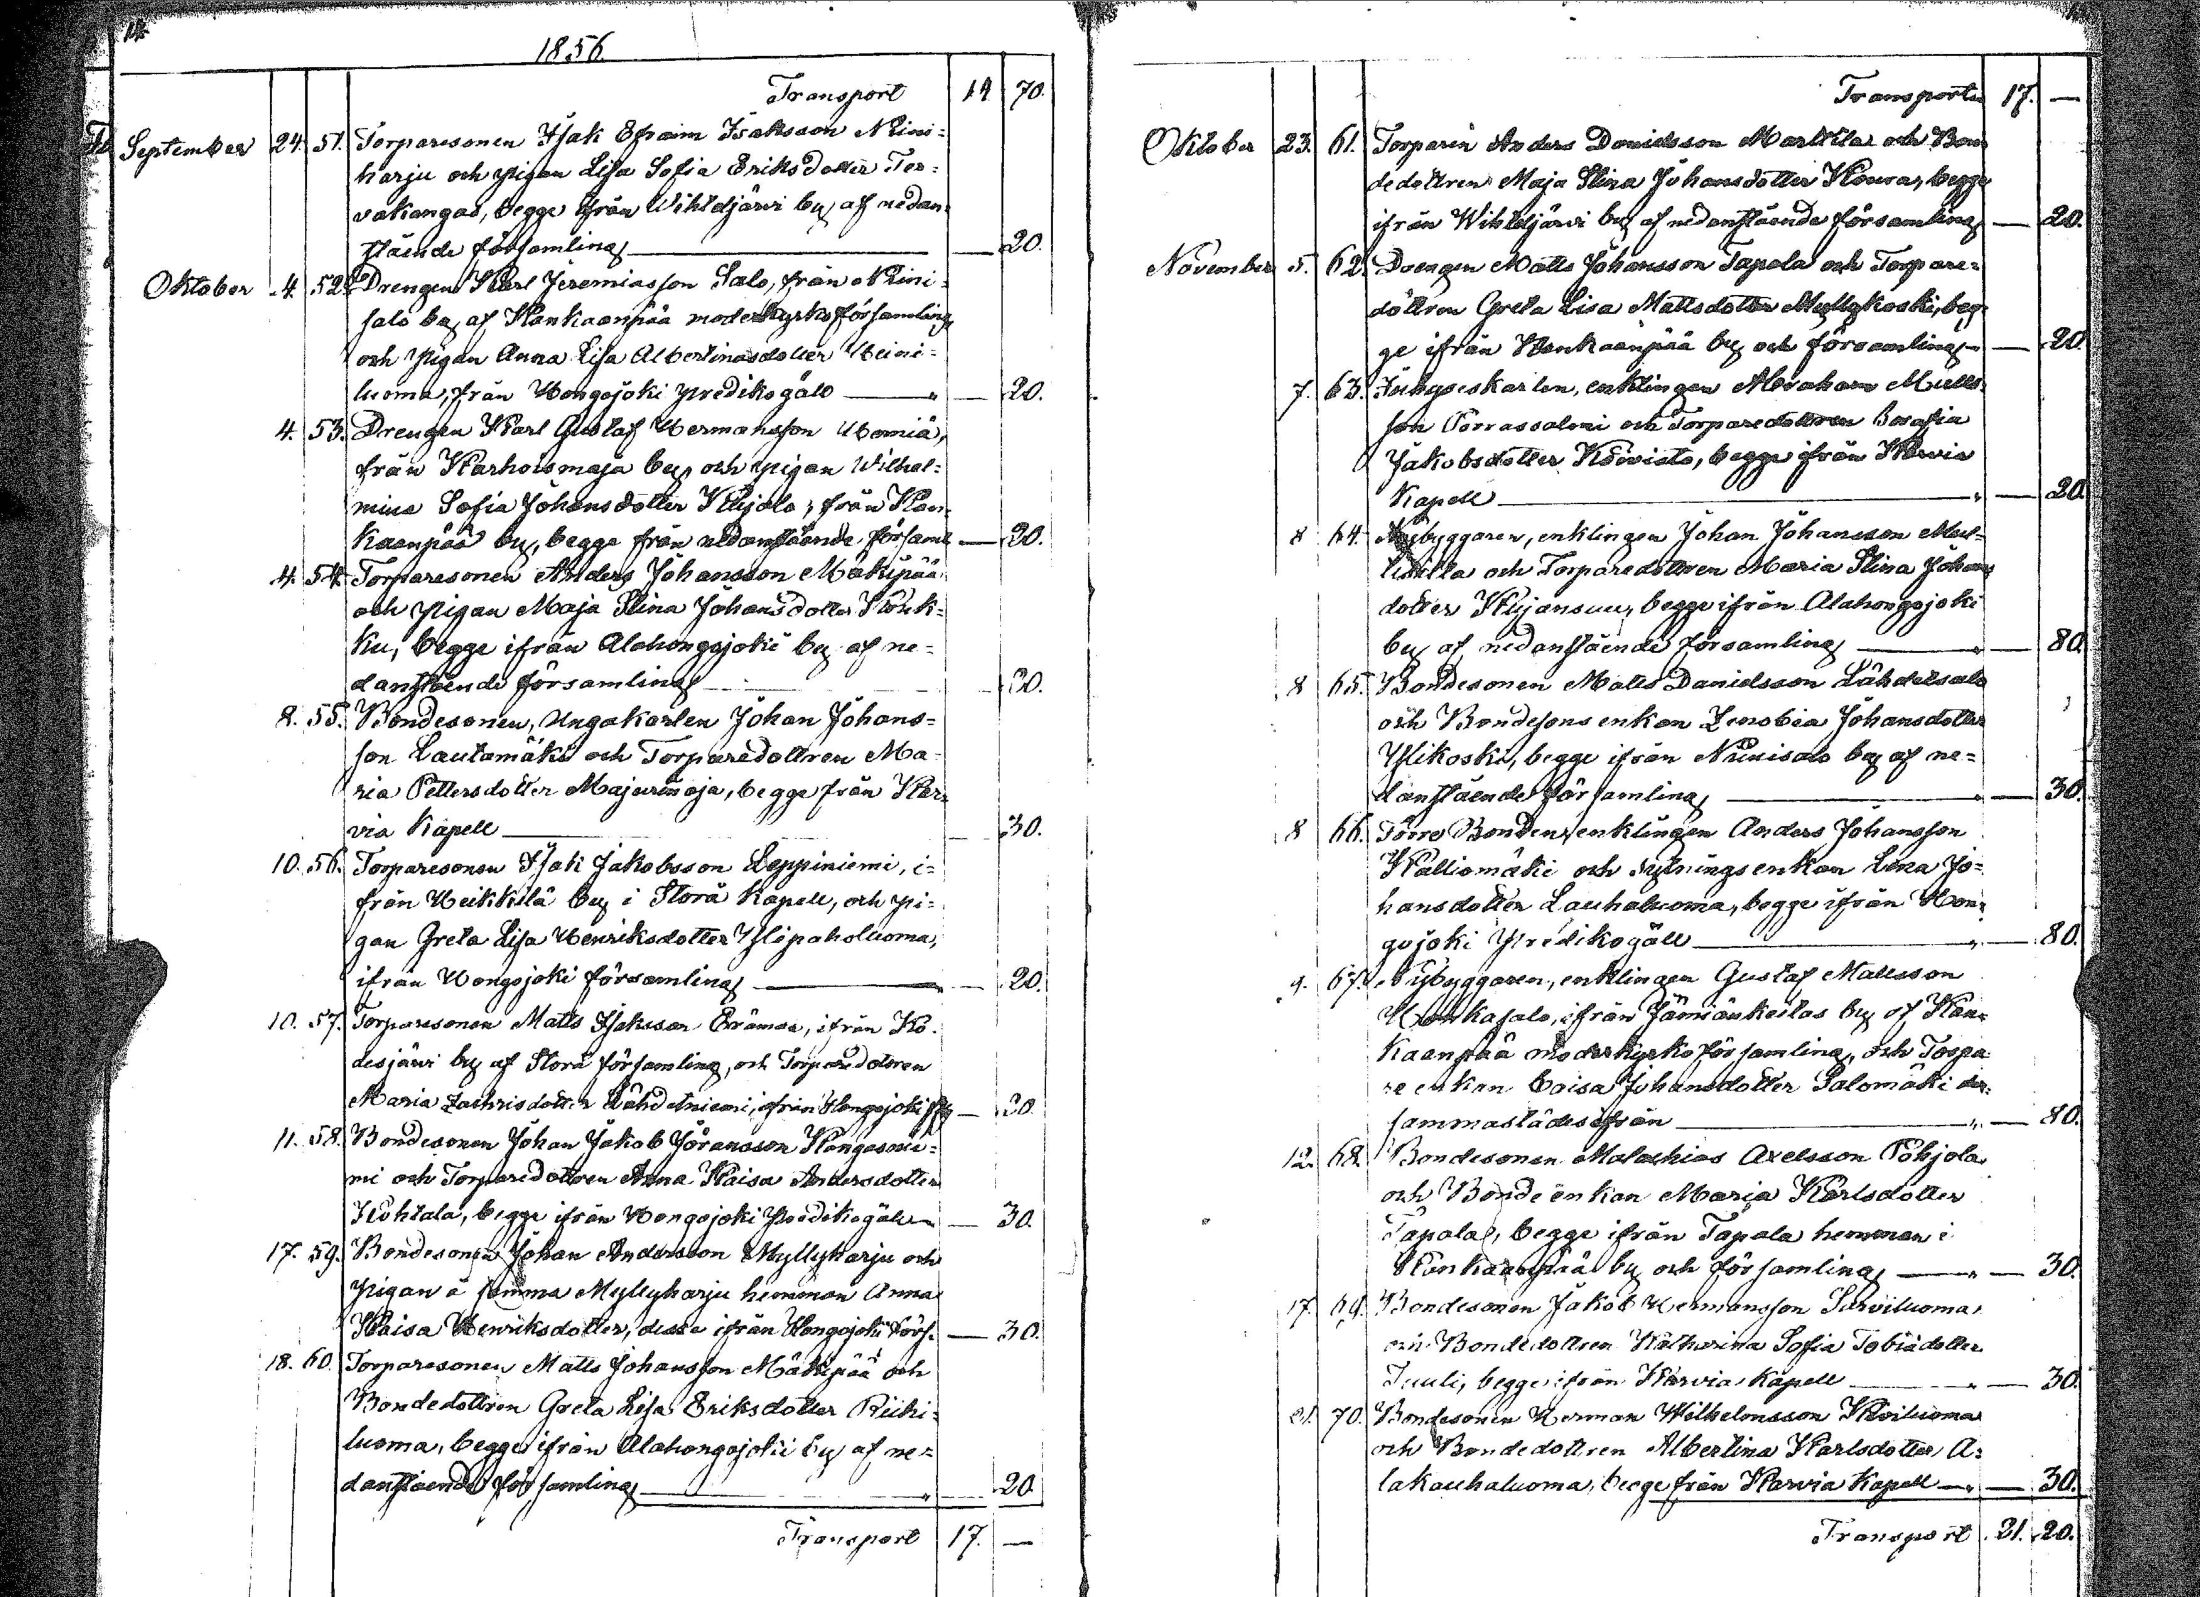 1856.
Transport 14 70.
September 24. 51. Torparesonen Isak Efraim Isaksson Niini-
harju och pigan Lisa Sofia Eriksdotter Ter-
vakangas, begge ifrån Wihteljärvi by af nedan-
stående församling — 20.
Oktober 4. 52. Drengen Karl Jeremiasson Salo, från Niini-
salo by af Kankaanpää moderkyrkoförsamling
och pigan Anna Lisa Albertinasdotter Heini-
luoma, från Hongojoki predikogäld " — 20.
4. 53. Drengen Karl Gustaf Hermansson Homiä,
från Karhoismaja by, och pigan Wilhel-
mina Sofia Johansdotter Kujala, från Kan-
kaanpää by, begge från nedanstående församl — 20.
4. 54. Torparesonen Anders Johansson Mäkipää
och pigan Maja Stina Johansdotter Kouk-
ku, begge ifrån Alahongojoki by af ne-
danstående församling — 20.
8. 55. Bondesonen, ungakarlen Johan Johans-
son Lautamäki och Torparedottren Ma-
ria Pettersdotter Majurinoja, begge från Kar-
via Kapell — 30.
10. 56. Torparesonen Isak Jakobsson Leppiniemi, i-
från Heikkilä by i Storå Kapell, och pi-
gan Greta Lisa Henriksdotter Ylipaholuoma,
ifrån Hongojoki församling — 20.
10. 57. Torparesonen Matts Isaksson Erämaa, ifrån Kö-
desjärvi by af Storå församling, och Torparedottren
Maria Zachrisdotter Lähdetniemi, ifrån Hongojoki — 20.
11. 58. Bondesonen Johan Jakob Jöransson Kangasnie-
mi och Torparedottren Anna Kaisa Andersdotter
Kohtala, begge ifrån Hongojoki Predikogäld — 30.
17. 59. Bondesonen Johan Andersson Myllyharju och
pigan å samma Myllyharju hemman Anna
Kaisa Henriksdotter, desse ifrån Hongojoki förs. — 30.
18. 60. Torparesonen Matts Johansson Mäkipää och
Bondedottren Greta Lisa Eriksdotter Riiki-
luoma, begge ifrån Alahongojoki by af ne-
danstående församling " — 20.
Transport 17. —
Transport 17. —
Oktober 23. 61. Torparen Anders Danielsson Markkila och Bon-
dedottren Maja Stina Johansdotter Koura, begge
ifrån Wihteljärvi by af nedanstående församling — 20.
November 5. 62. Drengen Matts Johansson Tapala och Torpare-
dottren Greta Lisa Mattsdotter Myllykoski, beg-
ge ifrån Kankaanpää by och församling — 20.
7. 63. Inhyseskarlen, enklingen Abraham Matts-
son Porrassalmi och Torparedottren Serafia
Jakobsdotter Koivisto, begge ifrån Karvia
Kapell " — 20.
8 64. Nybyggaren, enklingen Johan Johansson
och Torparedottren Maria Stina Johans-
dotter Kujansuu, begge ifrån Alahongojoki
by af nedanstående församling " — 80.
8 65. Bondesonen Matts Danielsson Lähdetsalo
och Bondesons enkan Zenobia Johansdotter
Ylikoski, begge ifrån Niinisalo by af ne-
danstående församling " — 30.
8 66. Förre Bonden, enklingen Anders Johansson
Kalliomäki och enkan Lena Jo-
hansdotter Lauhaluoma, begge ifrån Hon-
gojoki Predikogäll " — 80.
9. 67. Nybyggaren, enklingen Gustaf Mattsson
ifrån Jämiänkeitas by af Kan-
kaanpää moderkyrkoförsamling, och Torpa-
re enkan Caisa Johansdotter Salomäki der-
sammastädes ifrån " — 80.
12. 68. Bondesonen Malachias Axelsson Pohjola
och Bonde enkan Maria Karlsdotter
Tapala, begge ifrån Tapala hemman i
Kankaanpää by och församling " — 30.
17. 69. Bondesonen Jakob Hermansson Sarviluoma
och Bondedottren Katharina Sofia Tobiadotter
Juuli, begge ifrån Karvia Kapell " — 30.
21. 70. Bondesonen Herman Wilhelmsson Kiviluoma
och Bondedottren Albertina Karlsdotter A-
lakauhaluoma, begge från Karvia Kapell " — 30.
Transport 21. 20.